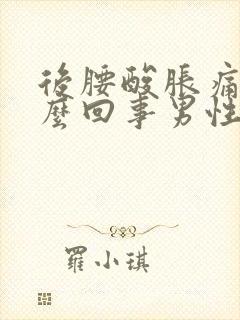 後腰酸脹痛
麼回事男性
羅小琪